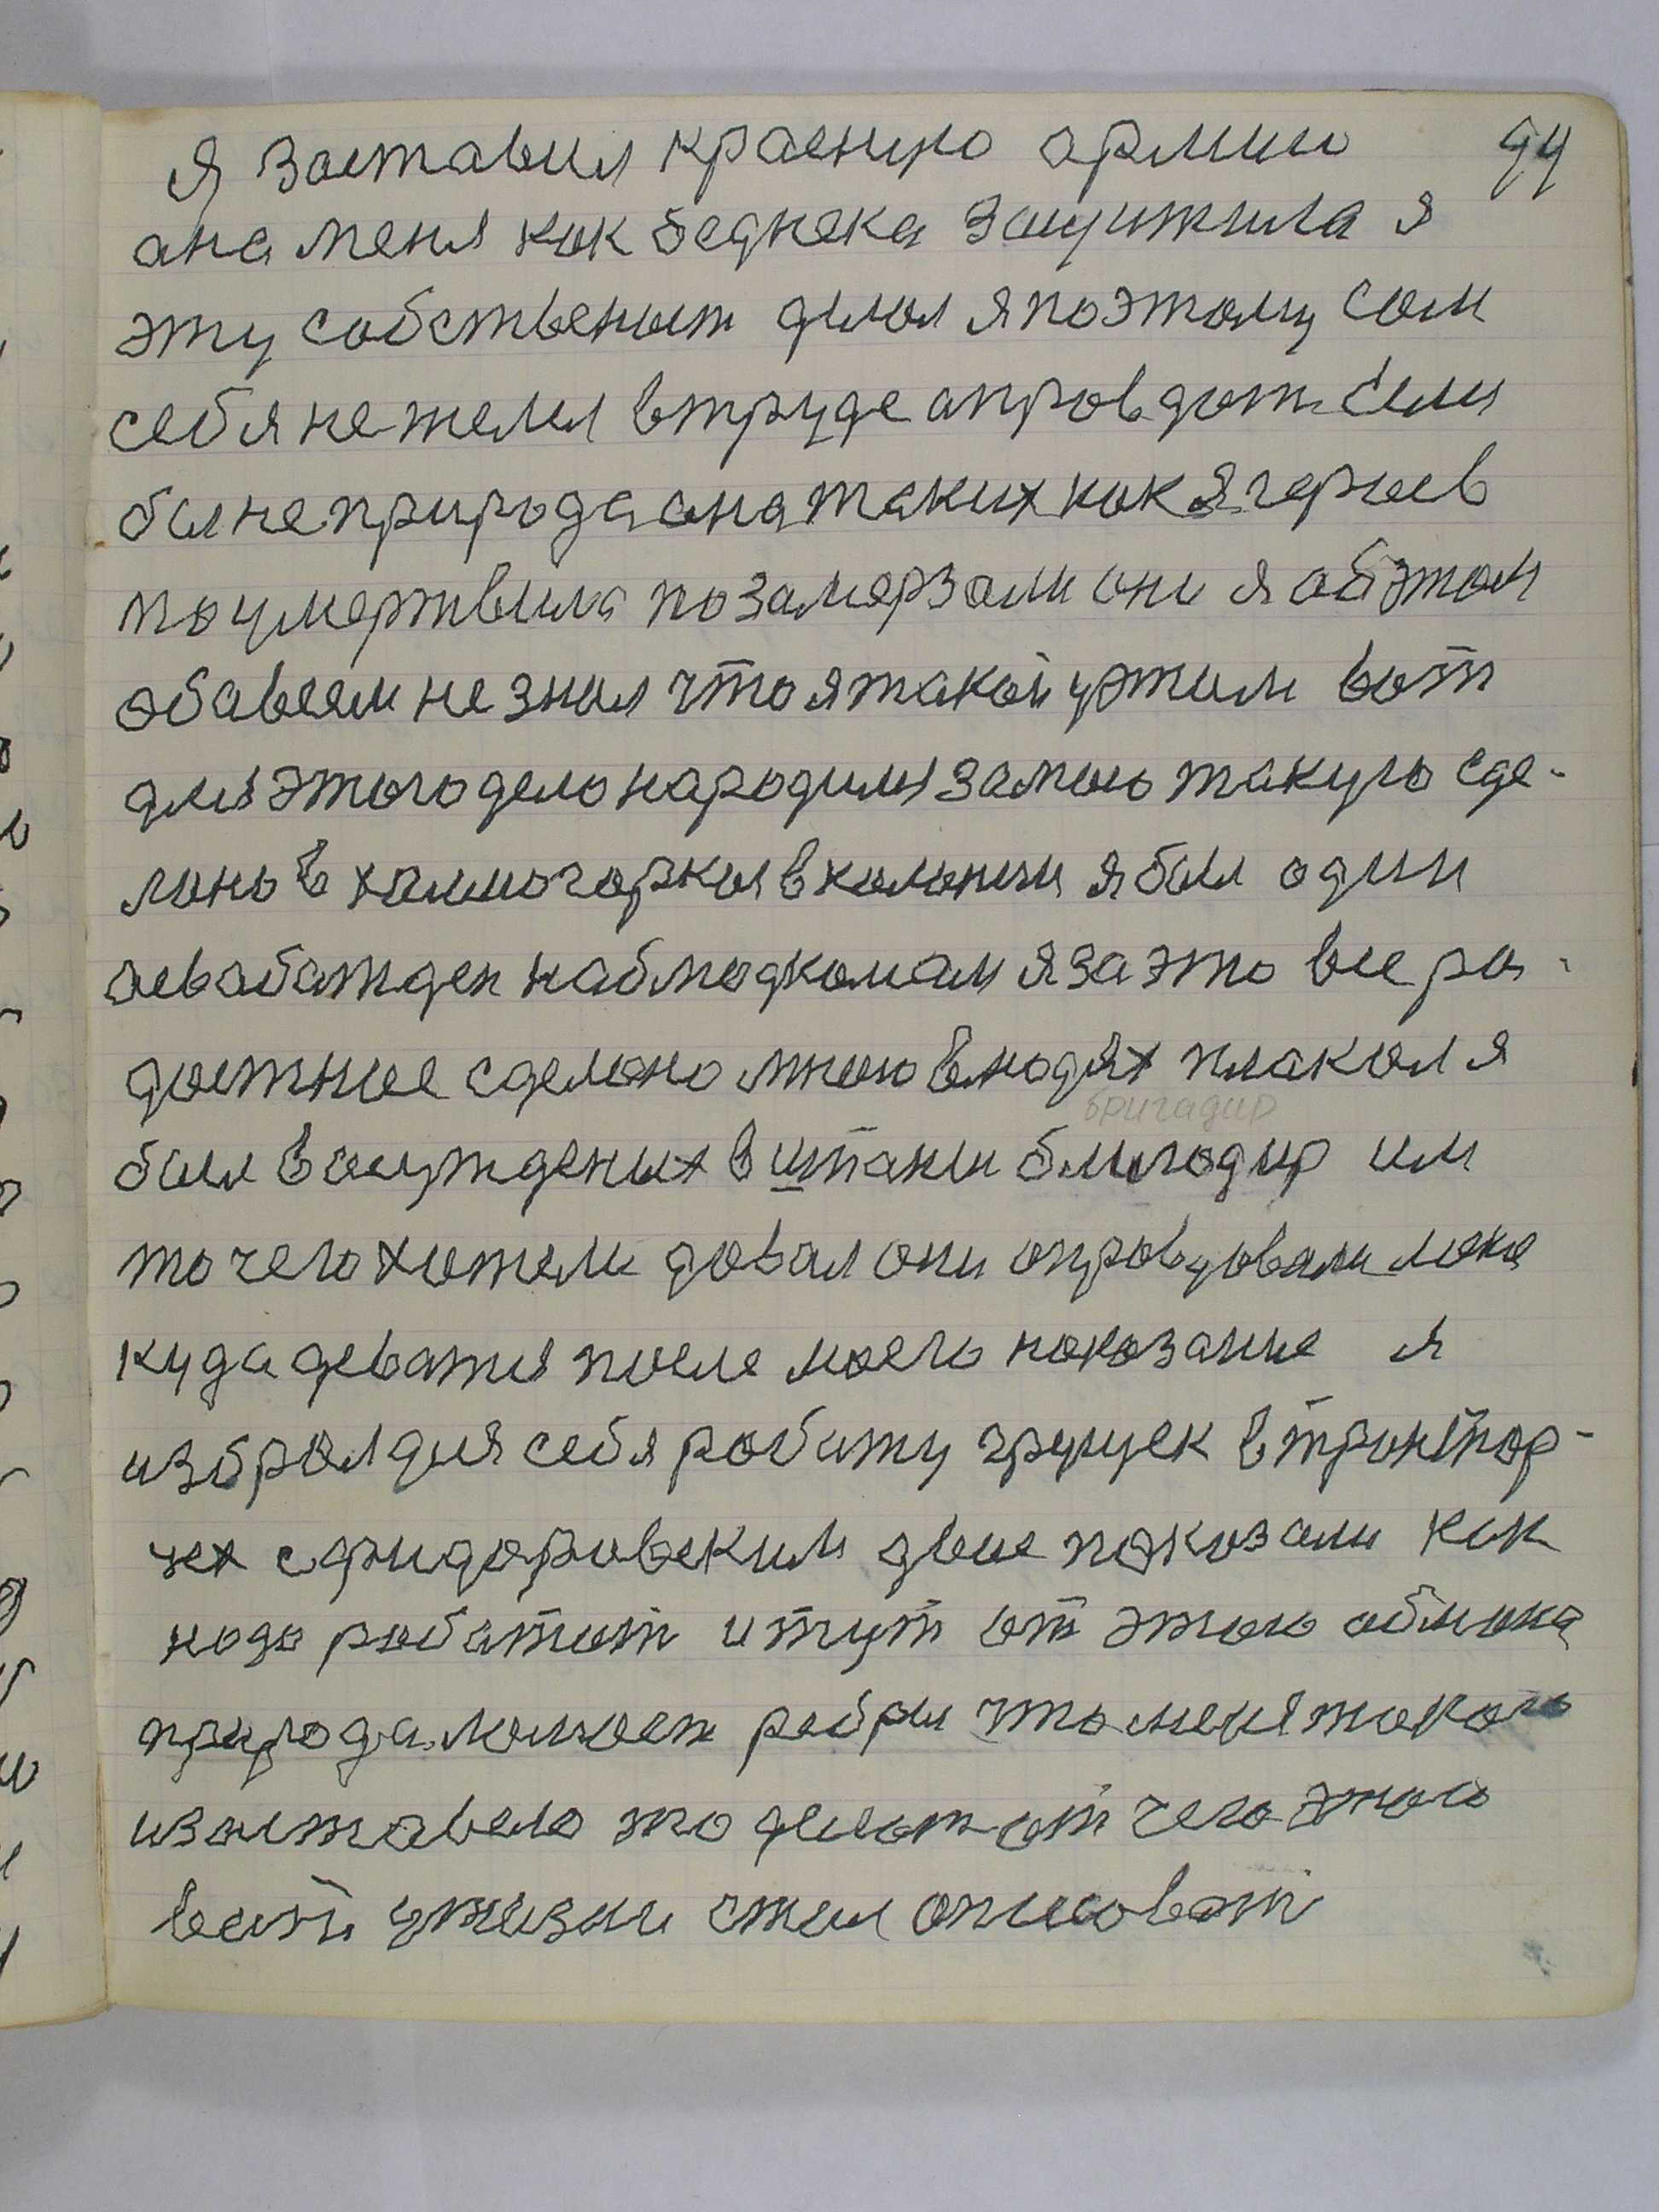 94
я заставил красную армию
ана меня как бедняка защитила я
эту собственист делал я поэтому сам
себя нежелал в труде аправдат если
бы не природа она таких как я героев
поумертвила позамерзали они я обэтом
обавсем не знал что я такой ужили вот
для этого дело народился за мою такую сде-
лано в холмогорках в колонии я был один
асвобажден наблюдкомам я за это все ра-
достное сделано мною в людях плакал я
бригадир
был в осужденых в штани блигодир им
то чего хотели давал они оправдовали мене
куда деватся после моего наказание я
избрал для себя работу грущек в транспор-
чех с фидаровским двое показали как
надо работат и тут от этого облиона
природа может ребра что меня такого
изаставело то делат от чего этого
вести ужизни стал описоват